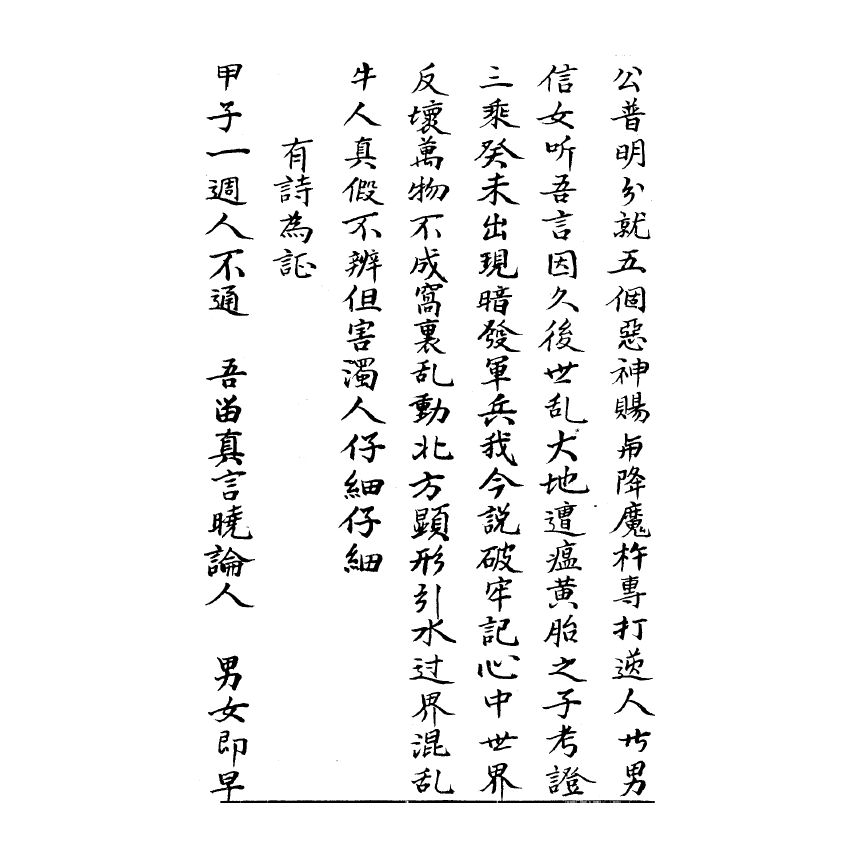 公普明分就五個惡神賜与降魔杵專打逆人廿男
信女听吾言因久後世乱大地遭瘟黄胎之子考證
三乘癸未出現暗發軍兵我今説破牢記心中世界
反壞萬物不成窩裏乱動北方顯形引水过界混乱
牛人真假不辨但害濁人仔細仔細
有詩為証
甲子一週人不通 吾留真言曉論人 男女即早